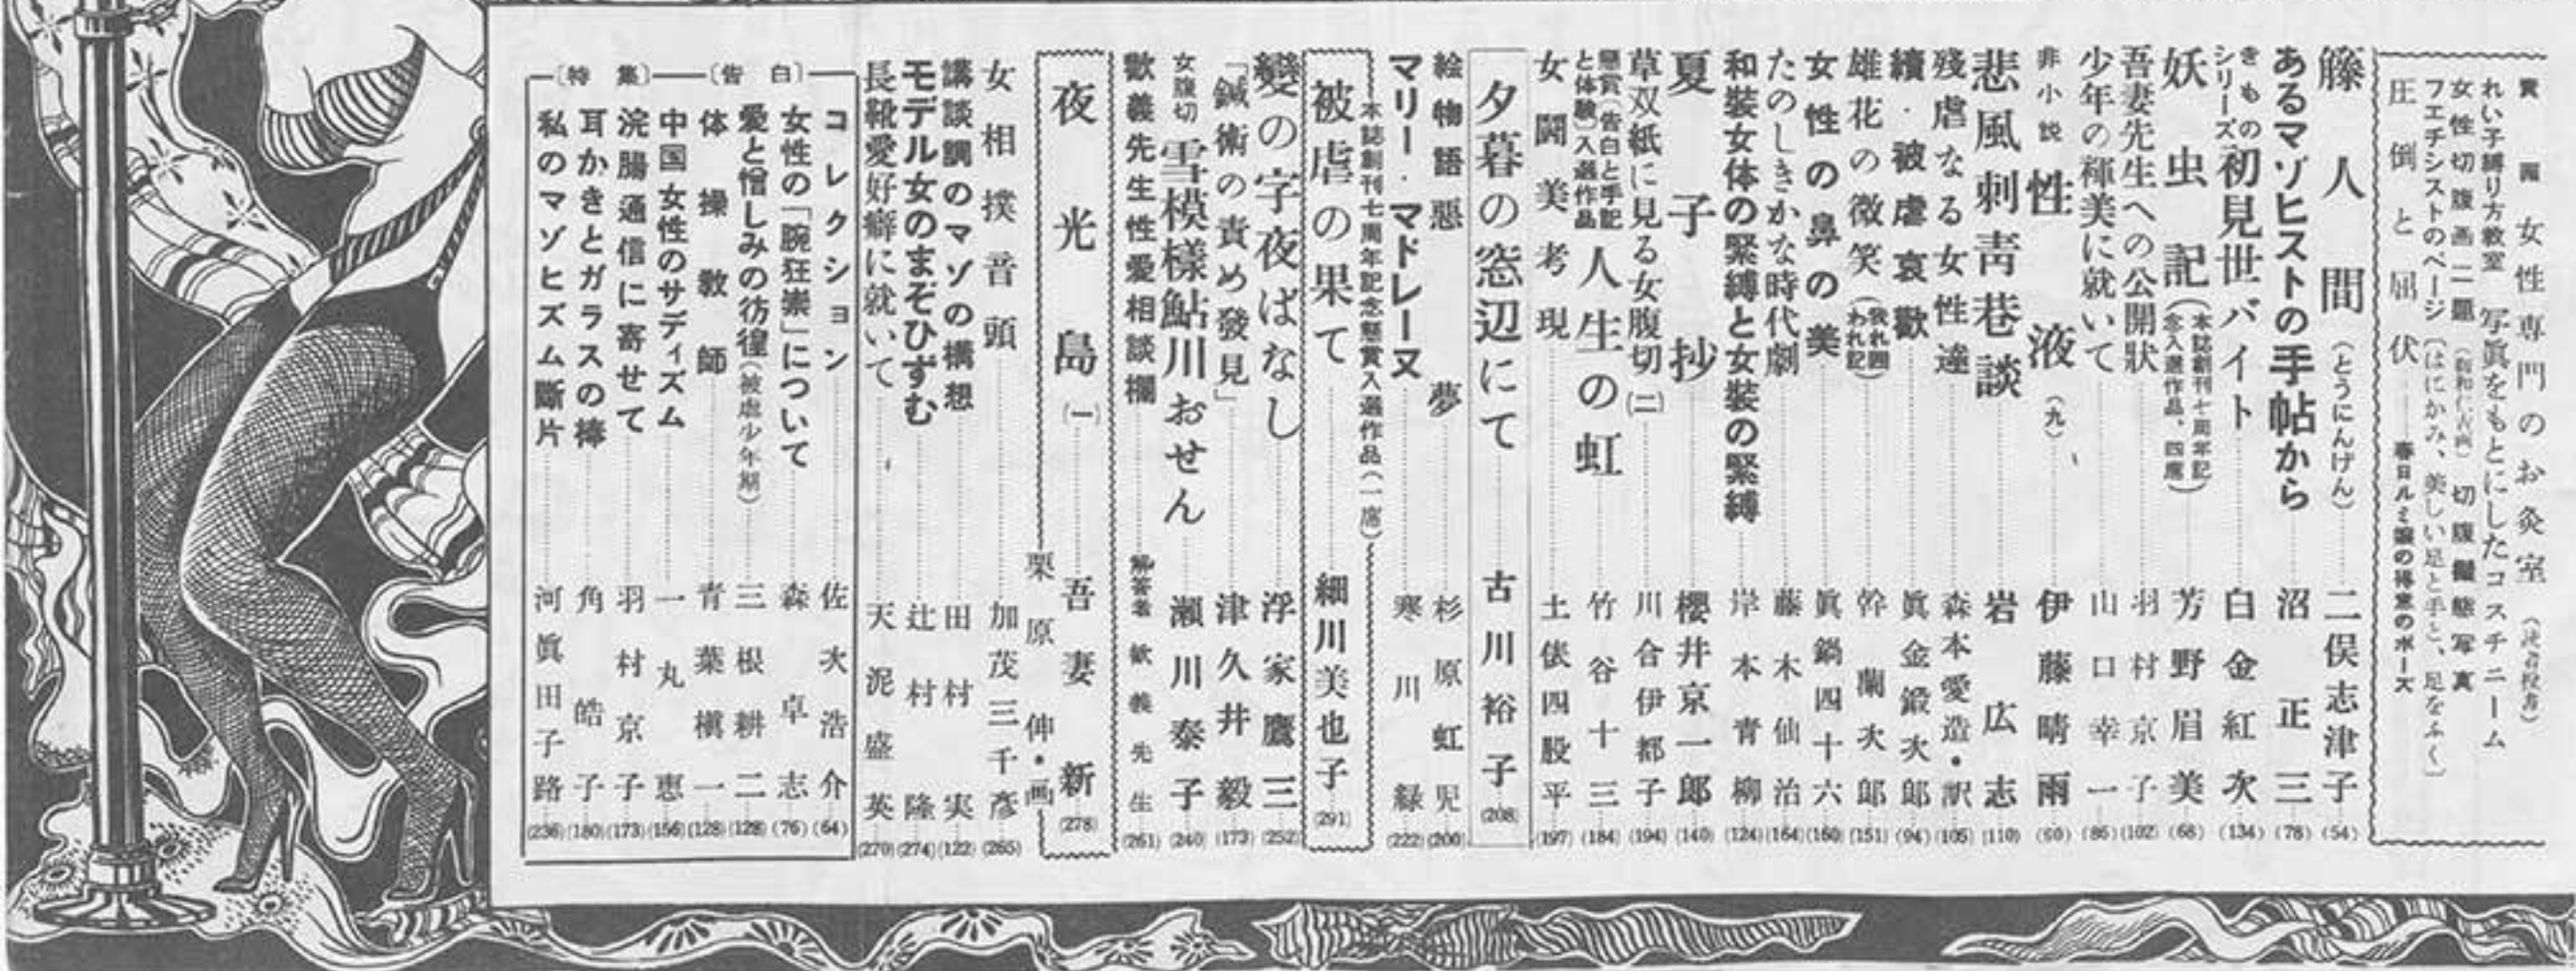 女性専門のお灸室
れい子縛り方教室 写眞をもとにしたコスチューム
女性切腹画二題 切腹擬態写真
フエチシストのページ〔はにかみ、美しい足と手と、足をふく〕
圧倒と屈伏 春日ルミ嬢の得意のポーズ
籐人間(とうにんげん) 二俣志津子 (54)
あるマゾヒストの手帖から 沼正三 (78)
きもの シリーズ 初見世バイト 白金紅次 (134)
妖虫記(本誌創刊七周年記念入選作品、四席) 芳野眉美 (68)
吾妻先生への公開狀 羽村京子 (102)
少年の褌美に就いて 山口幸一 (86)
非小説 性液(九) 伊藤晴雨 (60)
悲風刺青巷談 岩広志 (110)
殘虐なる女性達 森本愛造・訳 (105)
續・被虐哀歡 眞金鍛次郎 (94)
雄花の微笑 幹蘭次郎 (151)
女性の鼻の美 眞鍋四十六 (160)
たのしきかな時代劇 藤木仙治 (164)
和装女体の緊縛と女装の緊縛 岸本青柳 (124)
夏子抄 櫻井京一郎 (140)
草双紙に見る女腹切(二) 川合伊都子 (194)
懸賞(告白と手記と体験)入選作品 人生の虹 竹谷十三 (184)
女闘美考現 土俵四股平 (197)
夕暮の窓辺にて 古川裕子 (208)
絵物語 悪夢 杉原虹児 (200)
マリー・マドレーヌ 寒川緑 (222)
本誌創刊七周年記念懸賞入選作品(一席)
被虐の果て 細川美也子 (291)
變の字夜ばなし 浮家鷹三 (252)
「鍼術の責め發見」 津久井毅 (173)
女腹切 雪模様鮎川おせん 瀬川泰子 (240)
歓義先生性愛相談欄 解答者 歓義先生 (261)
夜光島(一) 吾妻新 (278)
栗原伸・画
女相撲音頭 加茂三千彦 (265)
講談調のマゾの構想 田村実 (122)
モデル女のまぞひずむ 辻村隆 (274)
長靴愛好癖に就いて 天泥盛英 (270)
〔特集〕〔告白〕
コレクション 佐次浩介 (64)
女性の「腕狂崇」について 森卓志 (76)
愛と憎しみの彷徨(被虐少年期) 三根耕二 (128)
体操教師 青葉槇一 (128)
中国女性のサディズム 一丸恵 (156)
浣腸通信に寄せて 羽村京子 (173)
耳かきとガラスの棒 角皓子 (180)
私のマゾヒズム斷片 河眞田子路 (236)